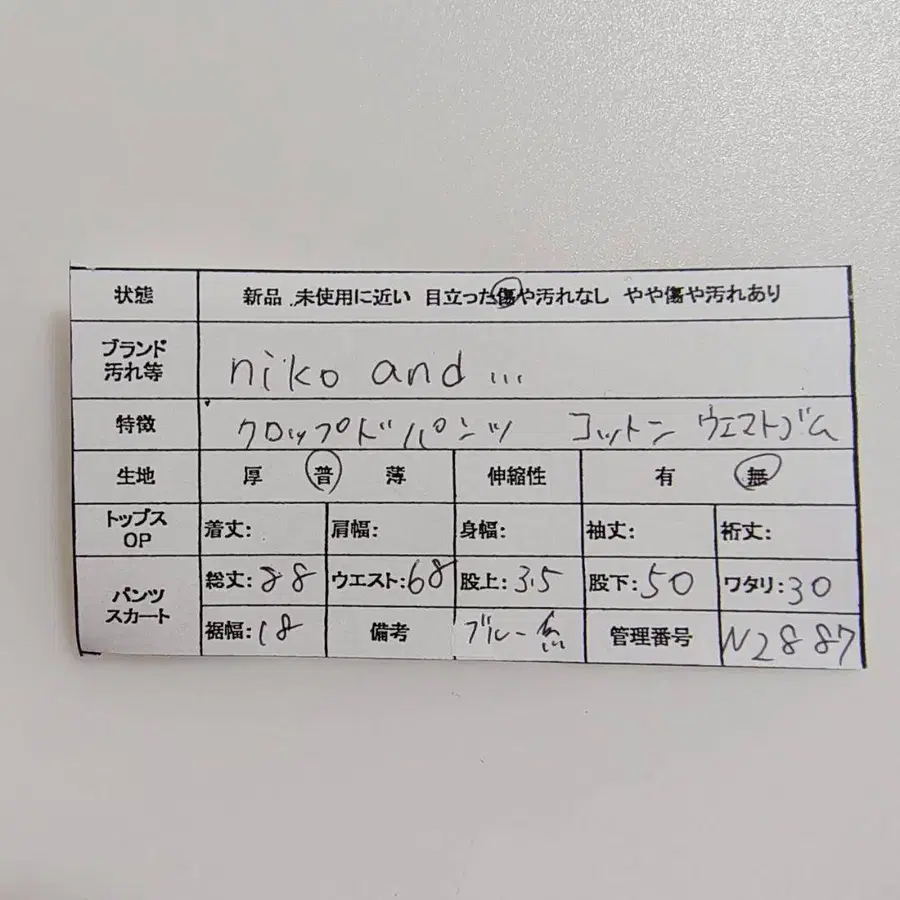 状態 新品 未使用に近い 目立った傷や汚れなし やや傷や汚れあり
ブランド
汚れ等 niko and ...
特徴 クロップドパンツ コットン ウエストゴム
生地 厚 普 薄 伸縮性 有 無
トップス
OP 着丈: 肩幅: 身幅: 袖丈: 裄丈:
パンツ
スカート 総丈:88 ウエスト:68 股上:35 股下:50 ワタリ:30
裾幅:18 備考 ブルー 管理番号 N2887